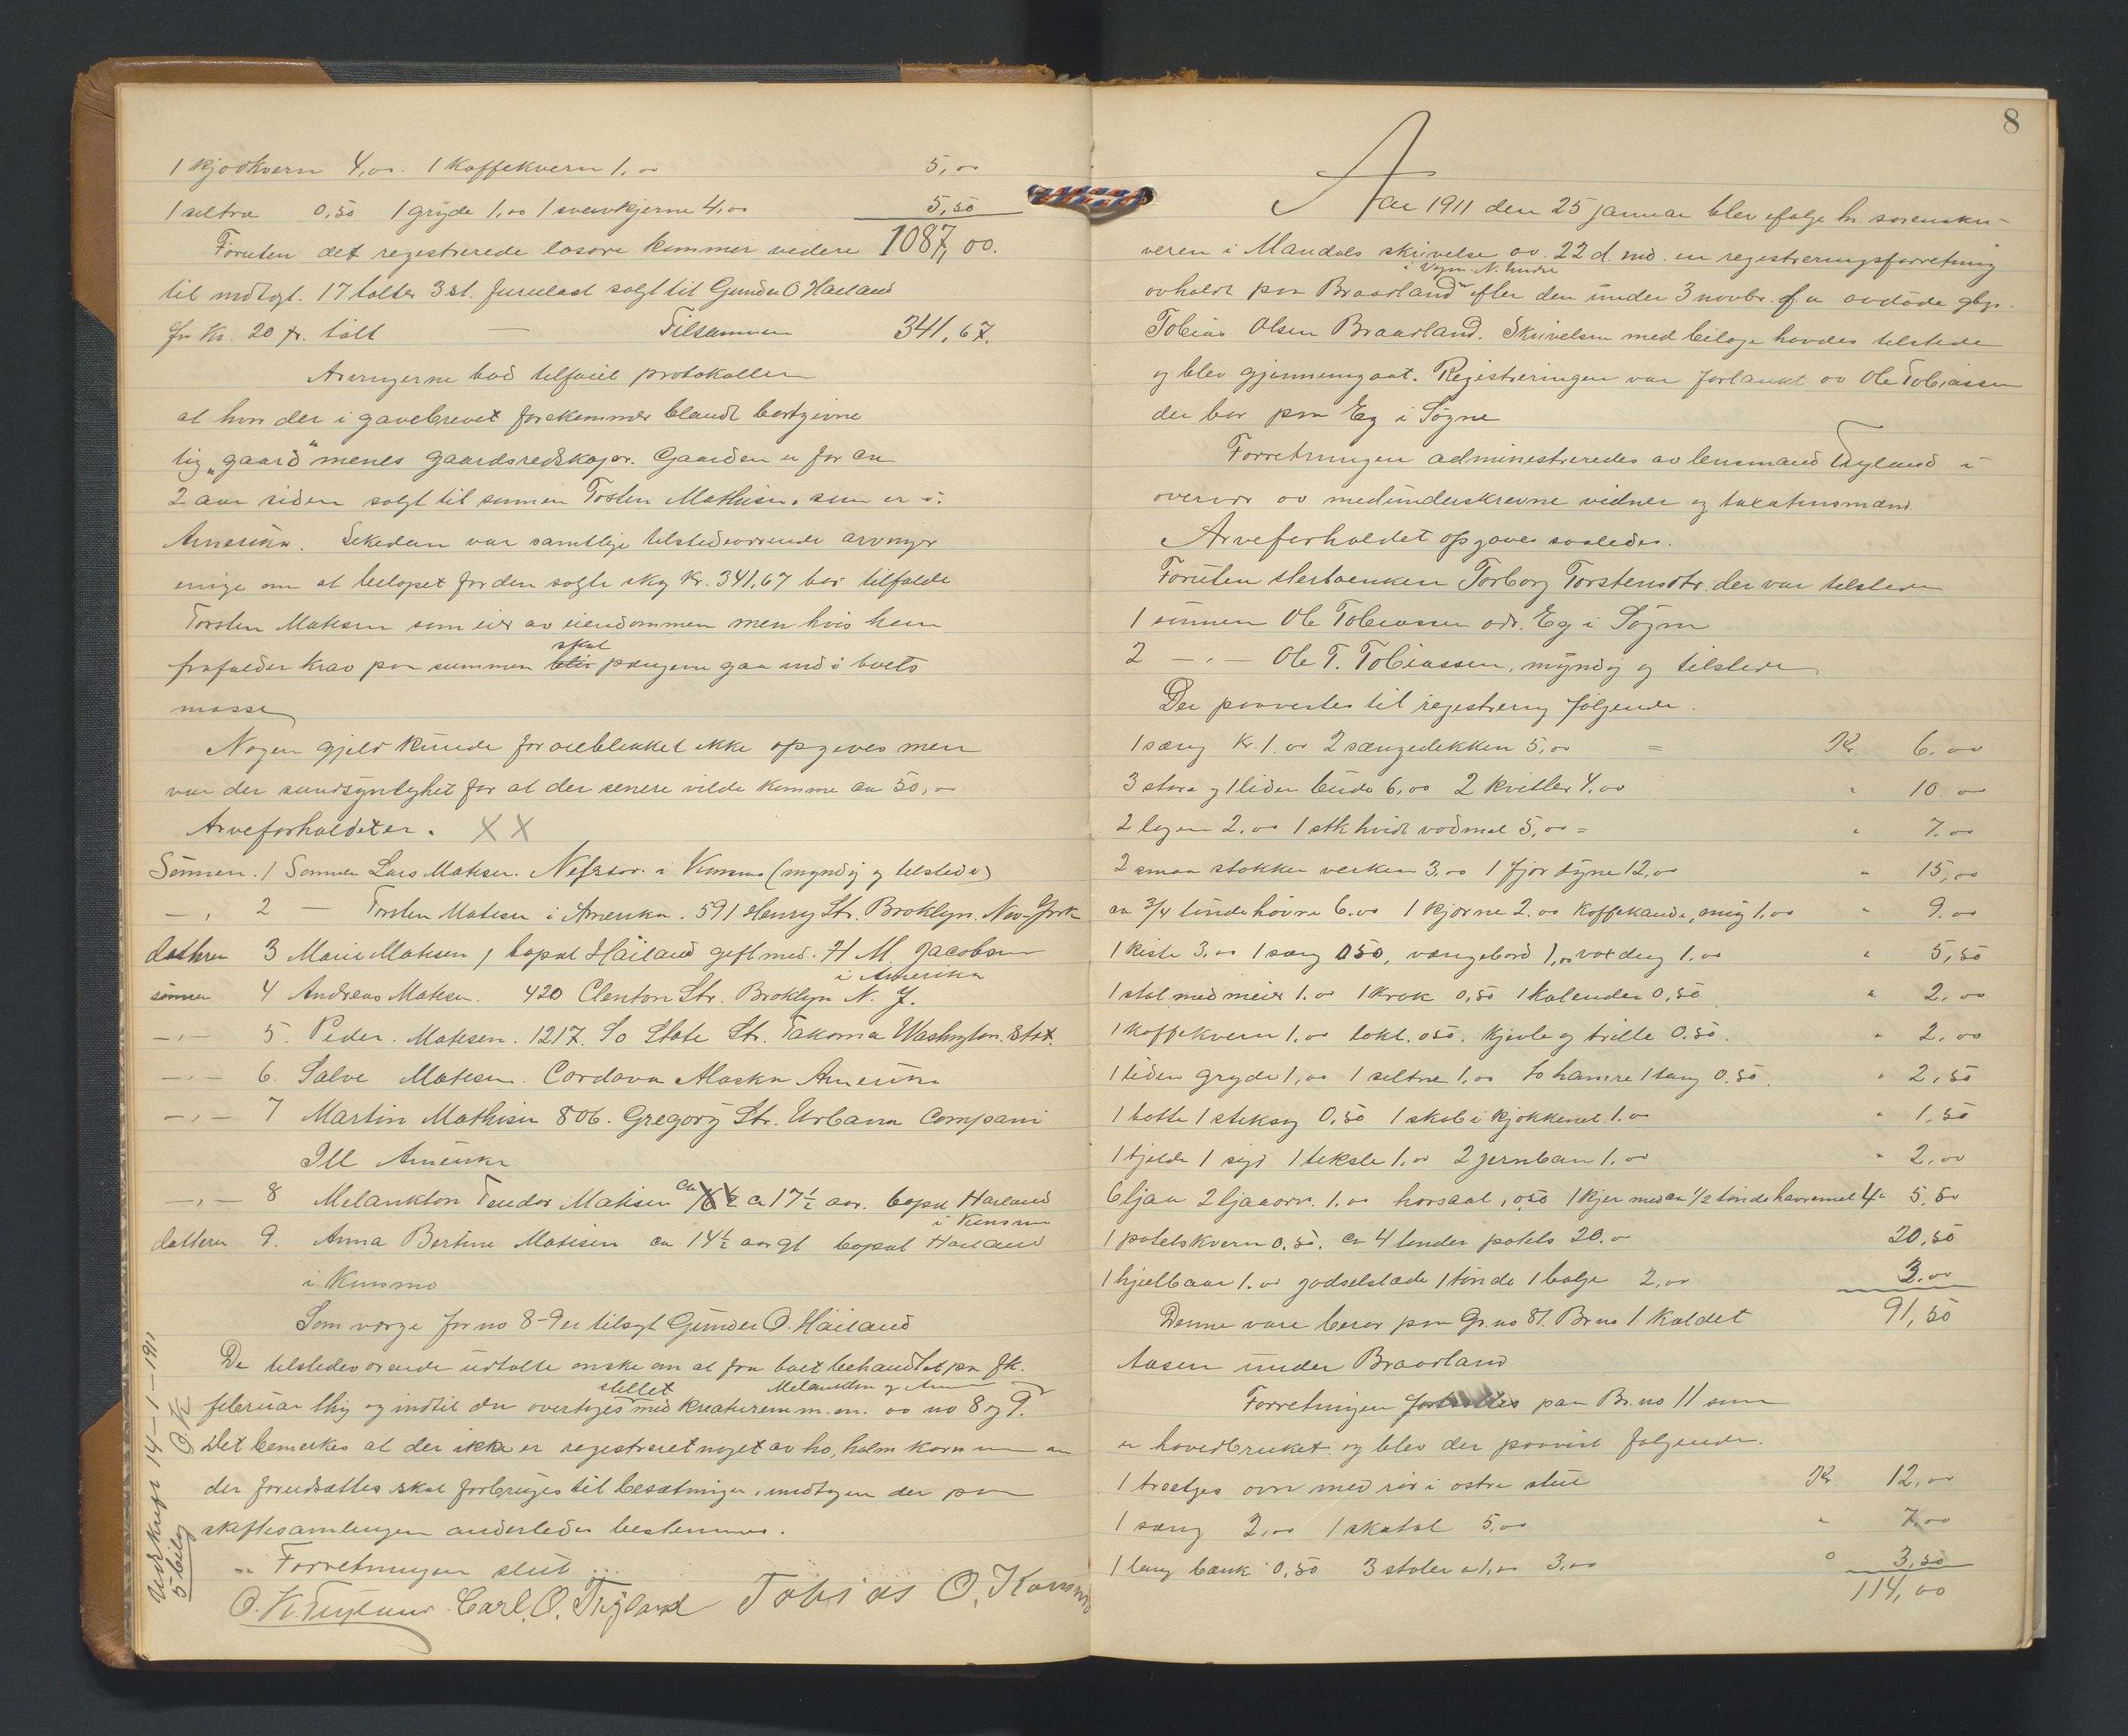 1 kjødkvern 4,00. 1 Kaffekvern 1.00 5,00
1 seltra 0,50 1 gryde 1,00 1 svenkjerne 4,00 5,50
Foruten det registrerede løsøre kommer videre 1087,00.
til indtægt. 17 tolter 3 st. furulast solgt til Gunder O Haaland
for Kr. 20 pr. tolt — Tilsammen 341,67.
Arvingerne bad tilføiet protokollen
at hvor der i gavebrevet forekommer blandt bortgivne
ting "gaard" menes gaardsredskaper. Gaarden er for ca
2 aar siden solgt til sønnen Torsten Mathisen, som er i
Amerika. Likedan var samtlige tilstedeværende arvinger
enige om at beløpet for den solgte skog kr. 341,67 bør tilfalde
Torsten Matisen som eier av eiendommen men hvis han
skal
frafalder krav paa summen blir pengene gaa ind i boets
masse
Nogen gjeld kunde for øieblikket ikke opgives men
var der sandsynlighet for at der senere vilde komme ca 50,00
Arveforholdet er. X X
Sønnen. 1 Sønnen Lars Matisen. i Kinsmo (myndig og tilstede)
— , 2 — Torsten Matisen i Amerika. 591 Henry Str. Broklyn. New-York
datteren 3 Marie Matisen, bopæl Häiland gift med. H M. Jacobsen
i Amerika
sønnen 4 Andreas Matisen. 420 Clenton Str. Broklyn N. Y.
— , — 5. Peder. Matisen. 1217. So State Str. Takoma Washington. Stat.
— , — 6. Salve Matisen. Cordova Alaska Amerika
— , — 7 Martin Mathisen 806. Gregory Str. Urbana Compani
Ill Amerika
— , — 8 Melankton Teodor Matisen ca 17 ½ aar. bopæl Haaland
i Kinsmo
datteren 9. Anna Bertine Matisen ca 14 ½ aar gl bopæl Haaland
i Kinsmo
Som værge for no 8-9 er tilsagt Gunder O. Häiland
De tilstedeværende udtalte ønske om at faa boet behandlet paa fk.
stellet Melankton og Anna
februar thing og indtil da overtages med kreaturene m. m. av no 8 og 9.
Det bemerkes at der ikke er registreret noget av hø, halm korn
der forudsættes skal forbruges til besætningen, medmindre der paa
skiftesamlingen anderledes bestemmes.
Forretningen slut
O. K. Tryland Carl. O. Trÿland Tobias O. Kornmo
Utskrift 14-1-1911
5 bilag O.K

8
Aar 1911 den 25 januar blev ifølge hr. sorenskri-
veren i Mandals skrivelse av 22 d. md. en registreringsforretning
i Vegn. N. Undal
avholdt paa Braadland efter den under 3 novbr. f. a avdøde gbr.
Tobias Olsen Braadland. Skrivelsen med bilage havdes tilstede
og blev gjennemgaat. Registreringen var forlangt av Ole Tobiassen
der bor paa Eg i Søgne
Forretningen administreredes av lensmand Tryland i
overvær av medunderskrevne vidner og taxationsmænd.
Arveforholdet opgaves saaledes.
Foruten sterboenken Torborg Torstensdtr. der var tilstede
1 sønnen Ole Tobiassen adr. Eg i Søgne
2 — , — Ole T. Tobiassen, myndig og tilstede
Der paavistes til registrering følgende.
1 sæng Kr. 1.00 2 sængedekken 5,00 = Kr. 6.00
3 store og 1 liden bude 6.00 2 kvitler 4.00 " 10.00
2 lagen 2.00 1 stk hvidt vadmel 5,00 = " 7.00
2 smaa stokker verken 3,00 1 fjær dyne 12,00 " 15,00
ca ¾ tønde havre 6.00 1 kjørne 2.00 Kaffekande, 1.00 " 9.00
1 kiste 3.00 1 sæng 0.50, vængebord 1,00 voxdug 1.00 " 5,50
1 stol med meier 1.00 1 krak 0,50 1 kalender 0,50 " 2.00
1 Kaffekvern 1.00 0.50. kjevle og trille 0.50. " 2.00
1 liden gryde 1,00 1 seltra 1,00 to hamre 1 tang 0.50. " 2,50
1 bøtte 1 stiksag 0,50 1 skab i kjøkkenet 1.00 " 1,50
1 bjelde 1 sigd 1 teksle 1.00 2 jernbaan 1.00 " 2,00
6 ljaa 2 ljaaorv. 1.00 0,50 1 kjer med ca ½ tønde havremel 4.00 5,50
1 potetskvern 0.50. ca 4 tønder potets 20.00 20,50
1 hjulbaar 1.00 gjødselslæde 1 tønde 1 balje 2,00 3.00
Denne vare beror paa Gr. no 81. Br no 1 kaldet 91,50
Aasen under Braadland
Forretningen fortsattes paa Br. no 11 som
er hovedbruket. og blev der paavist følgende.
1 treetges ovn med rør i østre stue Kr. 12,00
1 sæng 2,00 1 skatol 5,00 " 7,00
1 lang bænk 0,50 3 stoler a 1,00 3,00 " 3,50
114,00